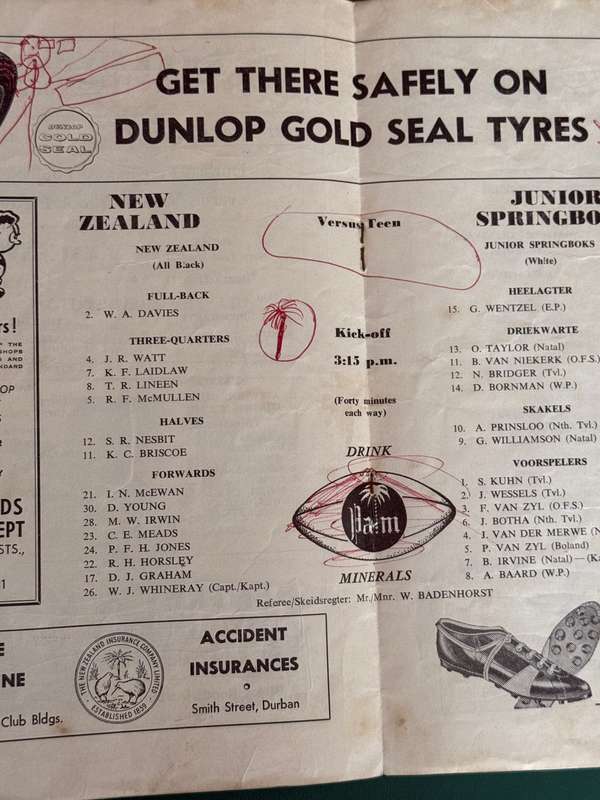 GET THERE SAFELY ON
DUNLOP GOLD SEAL TYRES
DUNLOP
GOLD
SEAL
NEW
ZEALAND
NEW ZEALAND
(All Black)
FULL-BACK
2. W. A. DAVIES
THREE-QUARTERS
4. J. R. WATT
7. K. F. LAIDLAW
8. T. R. LINEEN
5. R. F. McMULLEN
HALVES
12. S. R. NESBIT
11. K. C. BRISCOE
FORWARDS
21. I. N. McEWAN
30. D. YOUNG
28. M. W. IRWIN
23. C. E. MEADS
24. P. F. H. JONES
22. R. H. HORSLEY
17. D. J. GRAHAM
26. W. J. WHINERAY (Capt./Kapt.)
Versus/Teen
Kick-off
3:15 p.m.
(Forty minutes
each way)
DRINK
Palm
MINERALS
Referee/Skeidsregter: Mr./Mnr. W. BADENHORST
JUNIOR
SPRINGBO
JUNIOR SPRINGBOKS
(White)
HEELAGTER
15. G. WENTZEL (E.P.)
DRIEKWARTE
13. O. TAYLOR (Natal)
11. B. VAN NIEKERK (O.F.S.)
12. N. BRIDGER (Tvl.)
14. D. BORNMAN (W.P.)
SKAKELS
10. A. PRINSLOO (Nth. Tvl.)
9. G. WILLIAMSON (Natal)
VOORSPELERS
1. S. KUHN (Tvl.)
2. J. WESSELS (Tvl.)
3. F. VAN ZYL (O.F.S.)
6. J. BOTHA (Nth. Tvl.)
4. J. VAN DER MERWE (N
5. P. VAN ZYL (Boland)
7. B. IRVINE (Natal)—(Ka
8. A. BAARD (W.P.)
rs!
THE
SHOPS
AND
DARD
OP
DS
EPT
STS.,
1
E
NE
Club Bldgs.
THE NEW ZEALAND INSURANCE COMPANY LIMITED
ESTABLISHED 1859
ACCIDENT
INSURANCES
Smith Street, Durban